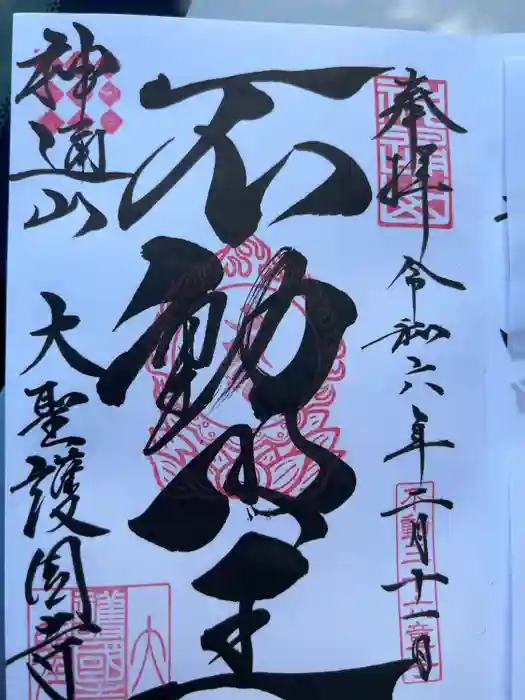 奉拝
令和六年二月十一日
不動明王
神通山
大聖護国寺